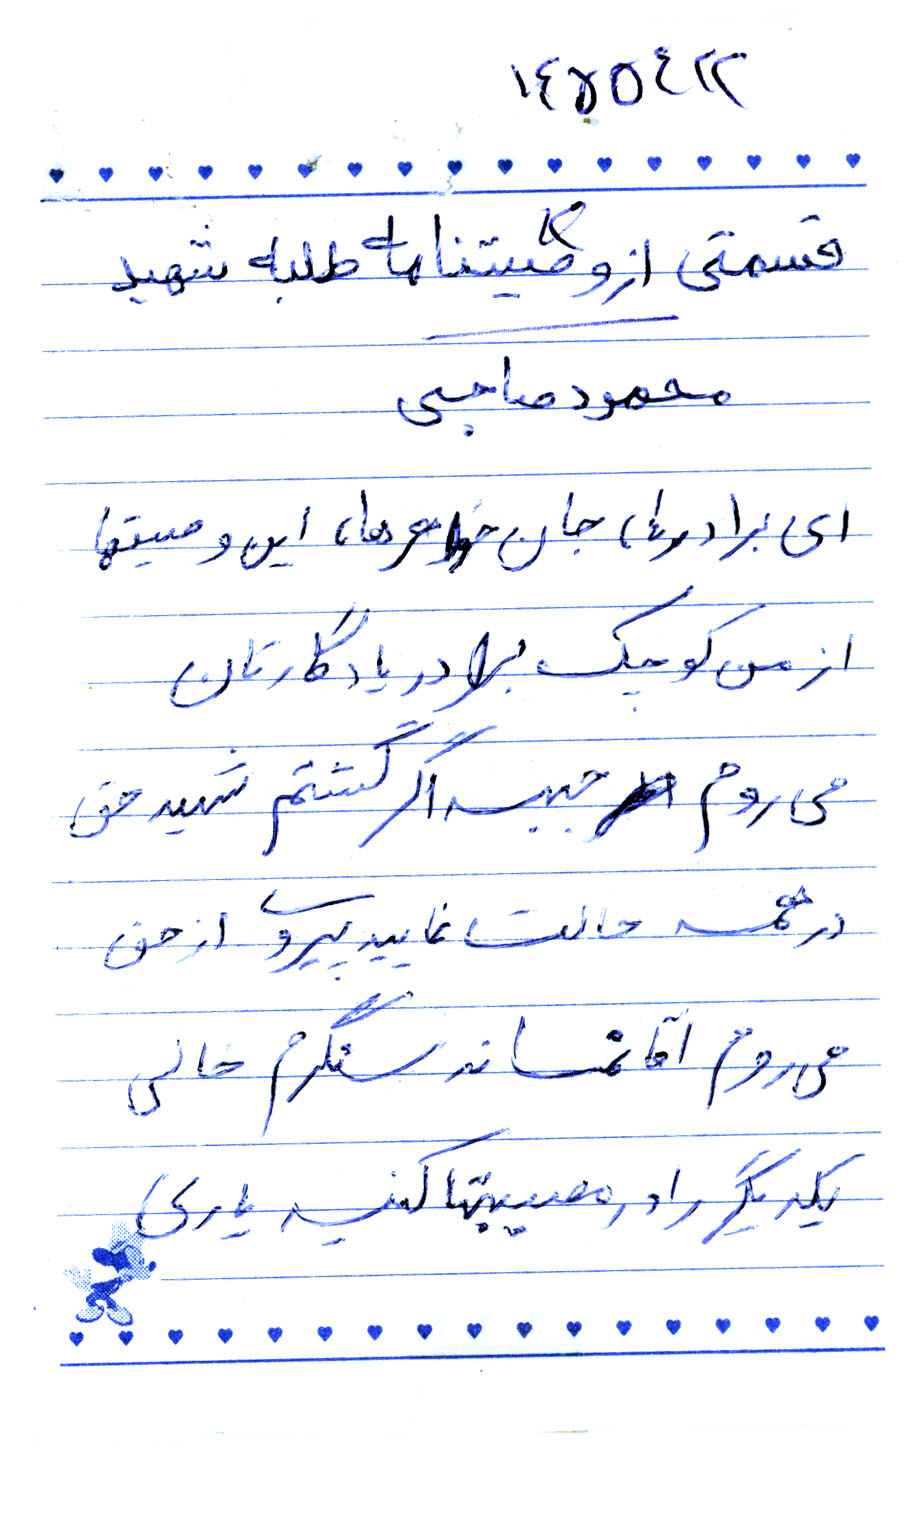 ۱٤۷۵٤۲۲
قسمتی از وصیتنامه طلبه شهید
محمود صاحبی
ای برادرها، جان خواهرها، این وصیتها
از من کوچک برادر یادگارتان
می روم جبهه اگر گشتم شهید حق
در همه حالت نمایید پیروی از حق
می روم آقا نماند سنگرم خالی
یکدیگر را در مصیبتها کنید یاری